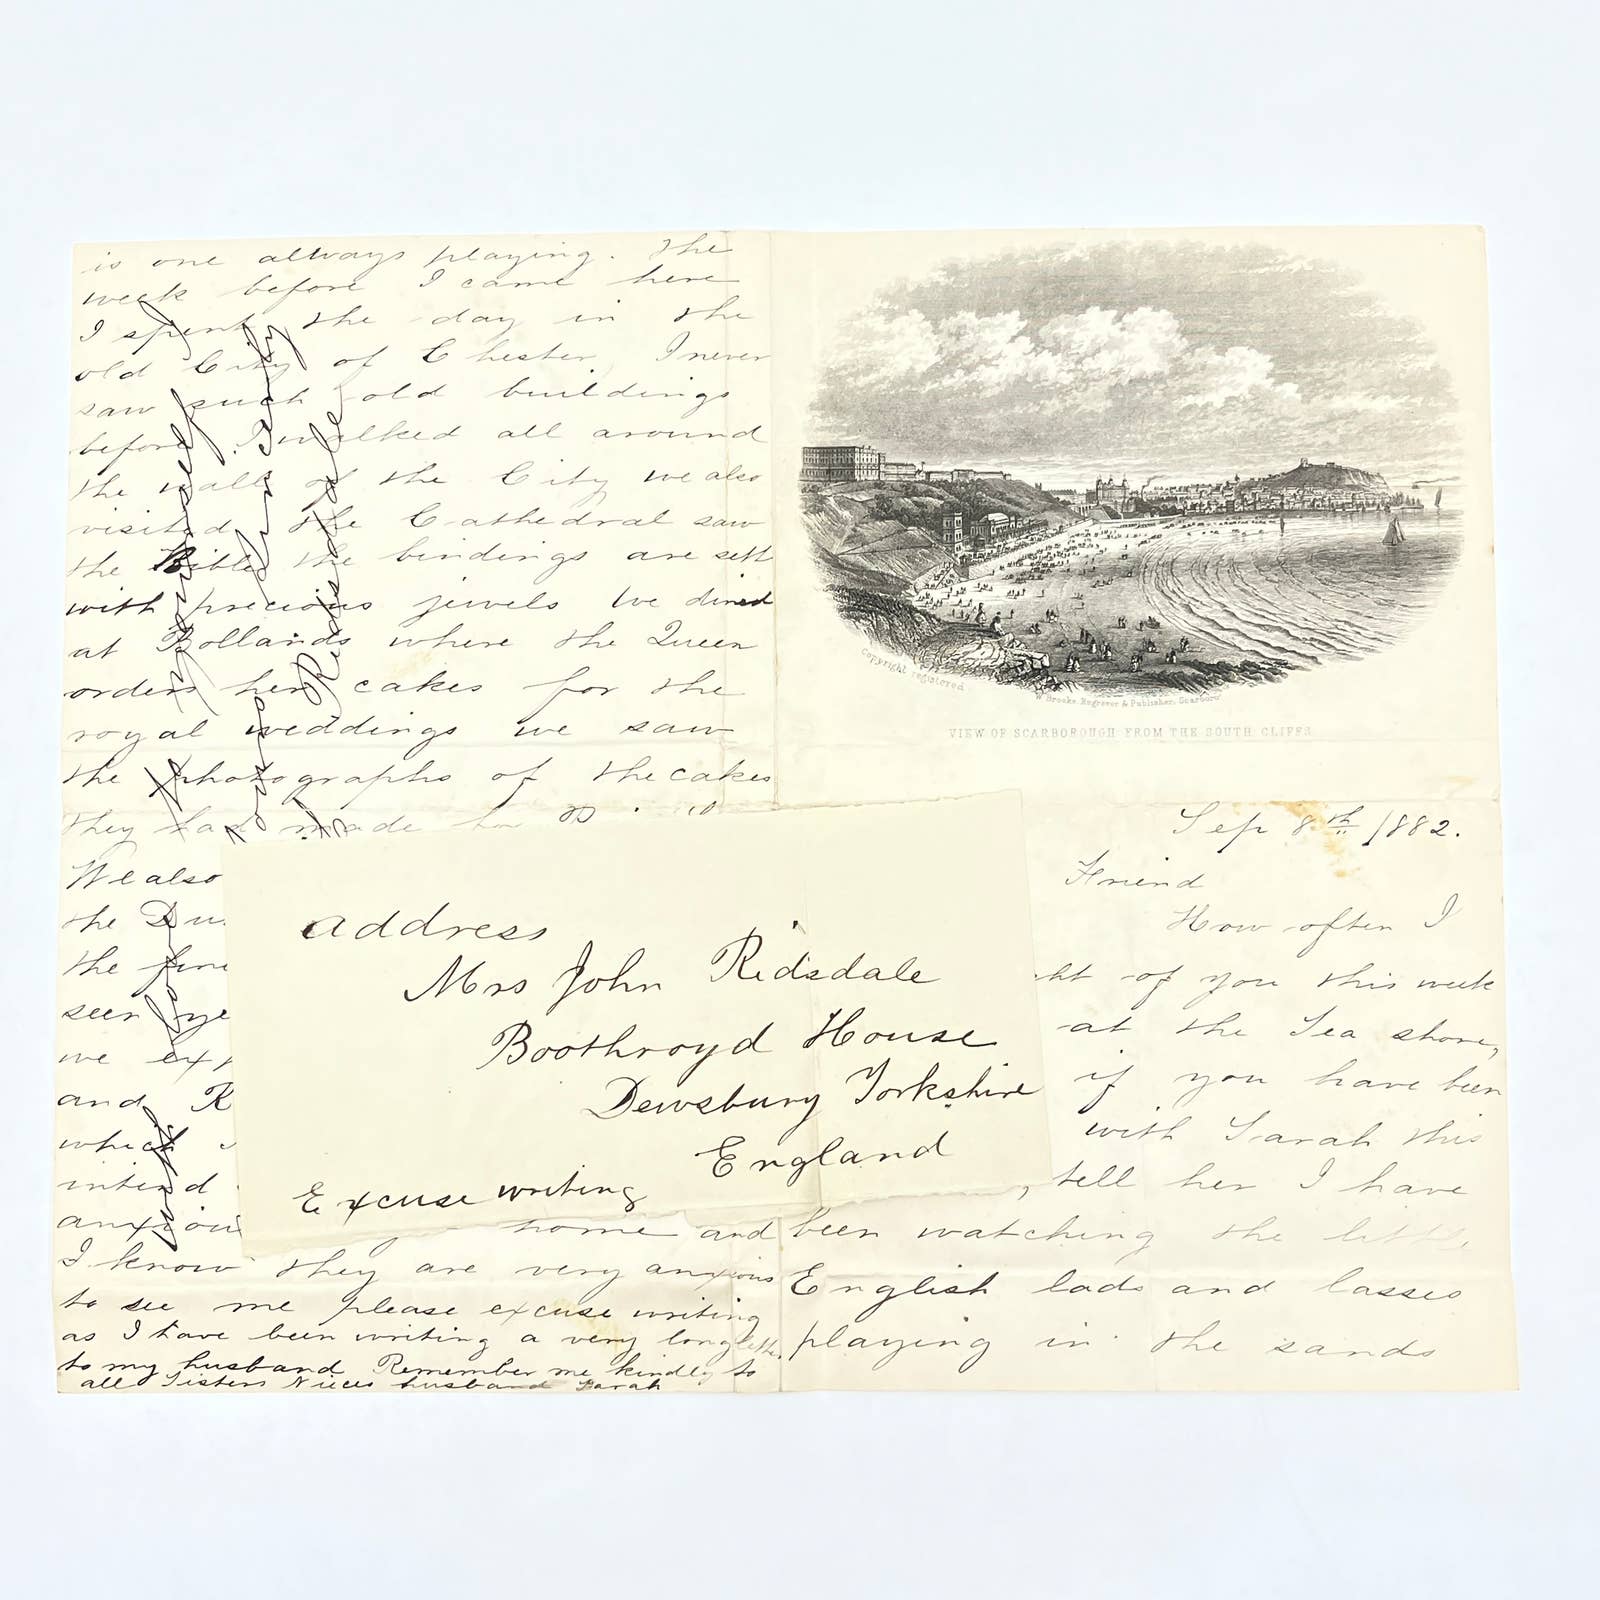 is one always playing. The
week before I came here
I spent the day in the
old City of Chester. I never
saw such old buildings
before. I walked all around
the walls of the City we also
visited the Cathedral saw
the Bible the bindings are sett
with precious jewels We dined
at Bollands where the Queen
orders her cakes for the
royal weddings we saw
the photographs of the cakes
they had made
We also
the
the
seen
we
and
which
intend
anxious home and
I know they are very anxious
to see me please excuse writing
as I have been writing a very long letter
to my husband Remember me kindly to
all Sisters Nieces husband Sarah
Copyright registered
W. Brooke, Engraver & Publisher, Scarboro
VIEW OF SCARBOROUGH FROM THE SOUTH CLIFFS
Sep 8th 1882.
Friend
How often I
of you this week
at the Sea shore,
if you have been
with Sarah this
tell her I have
been watching the little
English lads and lasses
playing in the sands
address
Mrs John Ridsdale
Boothroyd House
Dewsbury Yorkshire
England
Excuse writing